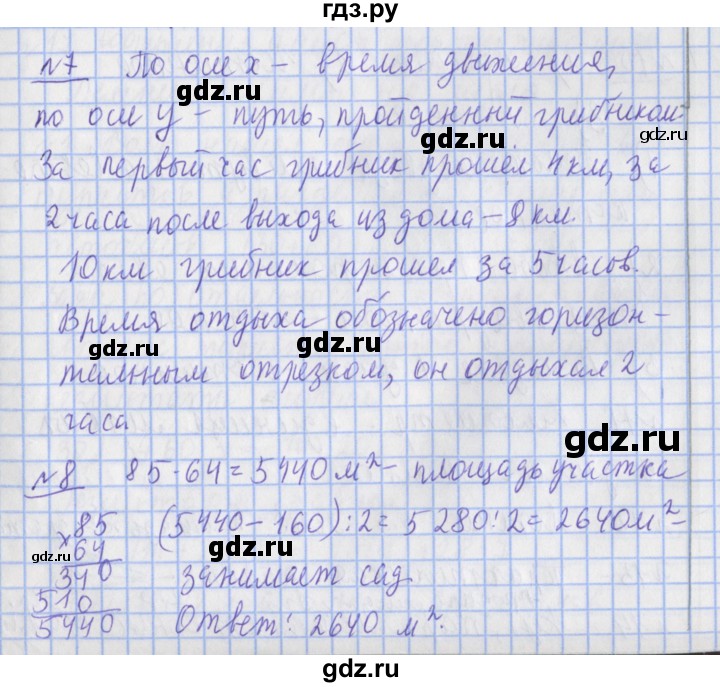 гдз.ру
№7 По оси х – время движения,
gdz.ru gdz.ru
по оси у – путь, пройденный грибником.
gdz.ru
За первый час грибник прошел 4 км, за
2 часа после выхода из дома – 8 км.
gdz.ru
10 км грибник прошел за 5 часов.
Время отдыха обозначено горизон-
gdz.ru gdz.ru
тальным отрезком, он отдыхал 2
часа
gdz.ru
№8 85·64=5440 м² – площадь участка
×85 (5440–160):2=5280:2=2640 м² –
gdz.ru gdz.ru gdz.ru
64
340 занимает сад
510
5440 Ответ: 2640 м².
gdz.ru